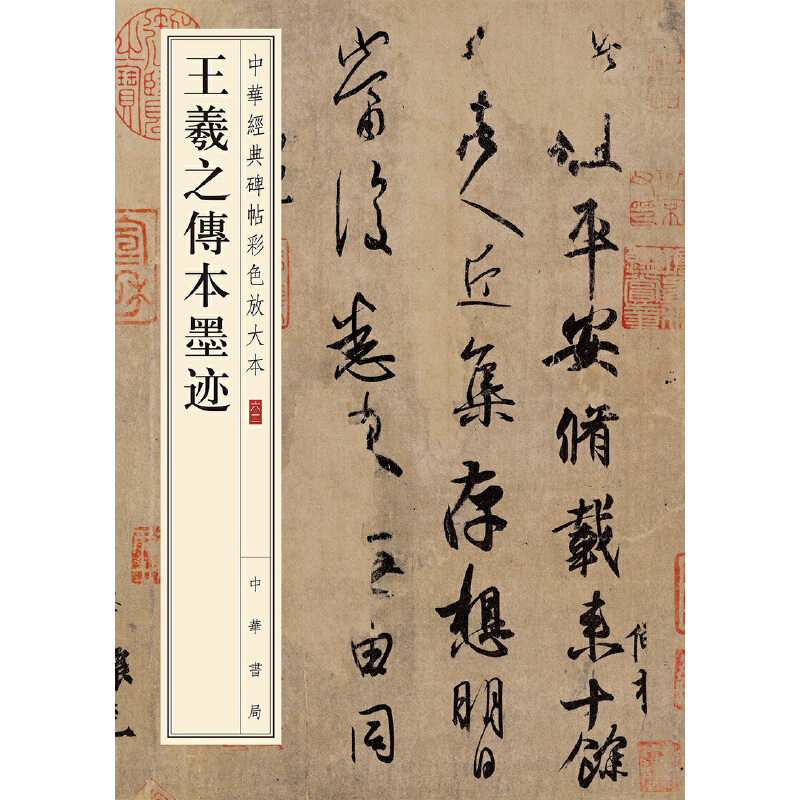 此粗平安脩載來十餘
諸人近集存想明日
當復悉來无由同
中華經典碑帖彩色放大本
王羲之傳本墨迹
中華書局